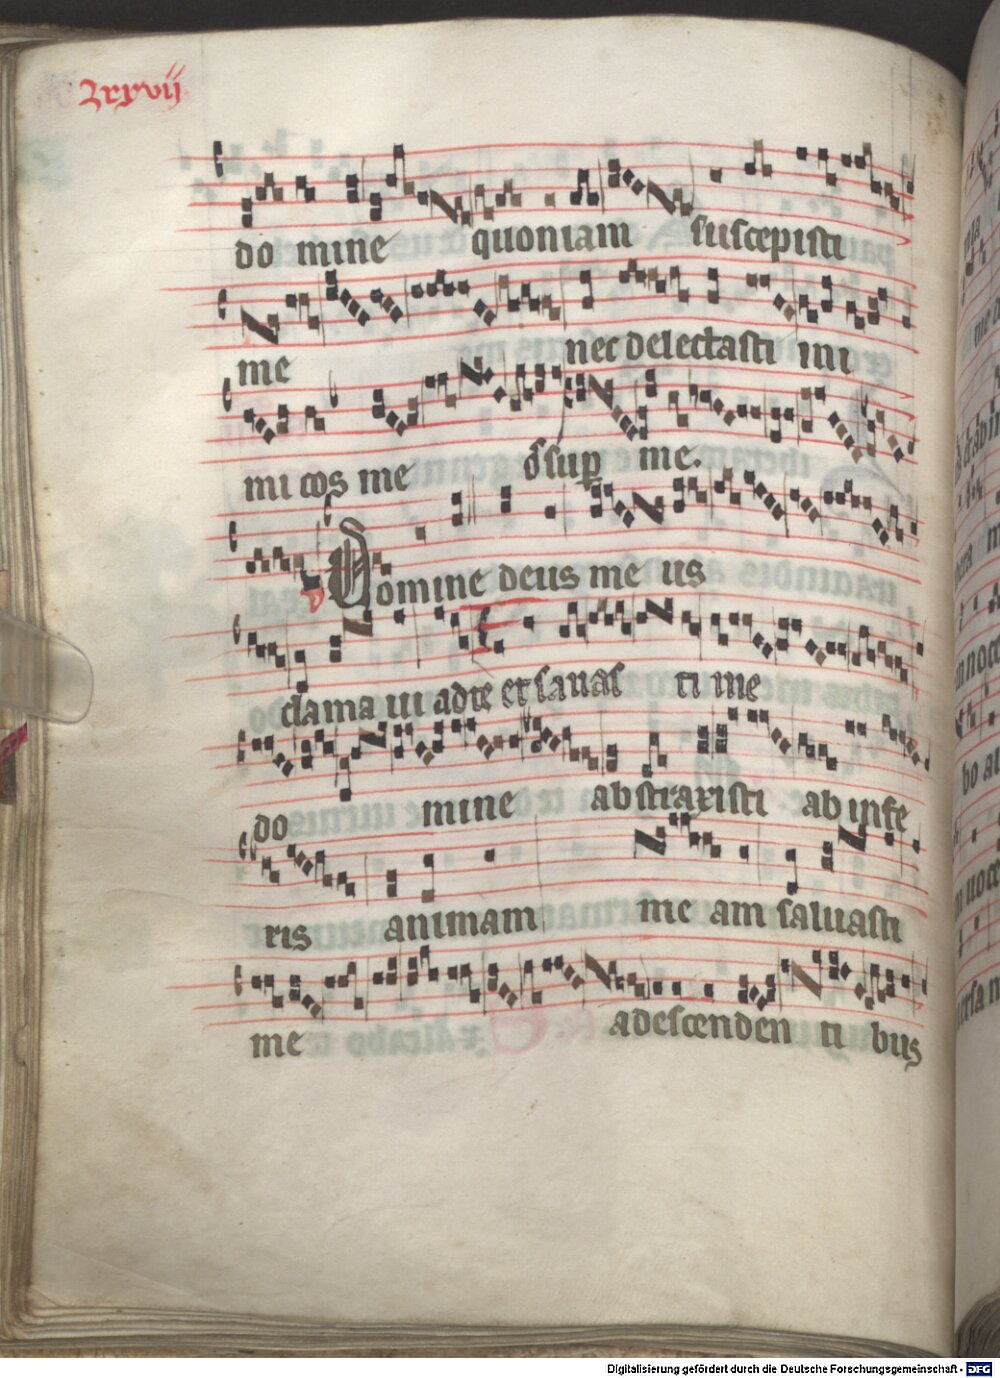 Lxxvij
do mine quoniam suscepisti
me nec delectasti ini
mi cos me os sup me.
V Domine deus me us
clama ui ad te et sanas ti me
do mine abstraxisti ab infe
ris animam me am saluasti
me a descenden ti bus
Digitalisierung gefördert durch die Deutsche Forschungsgemeinschaft - DFG